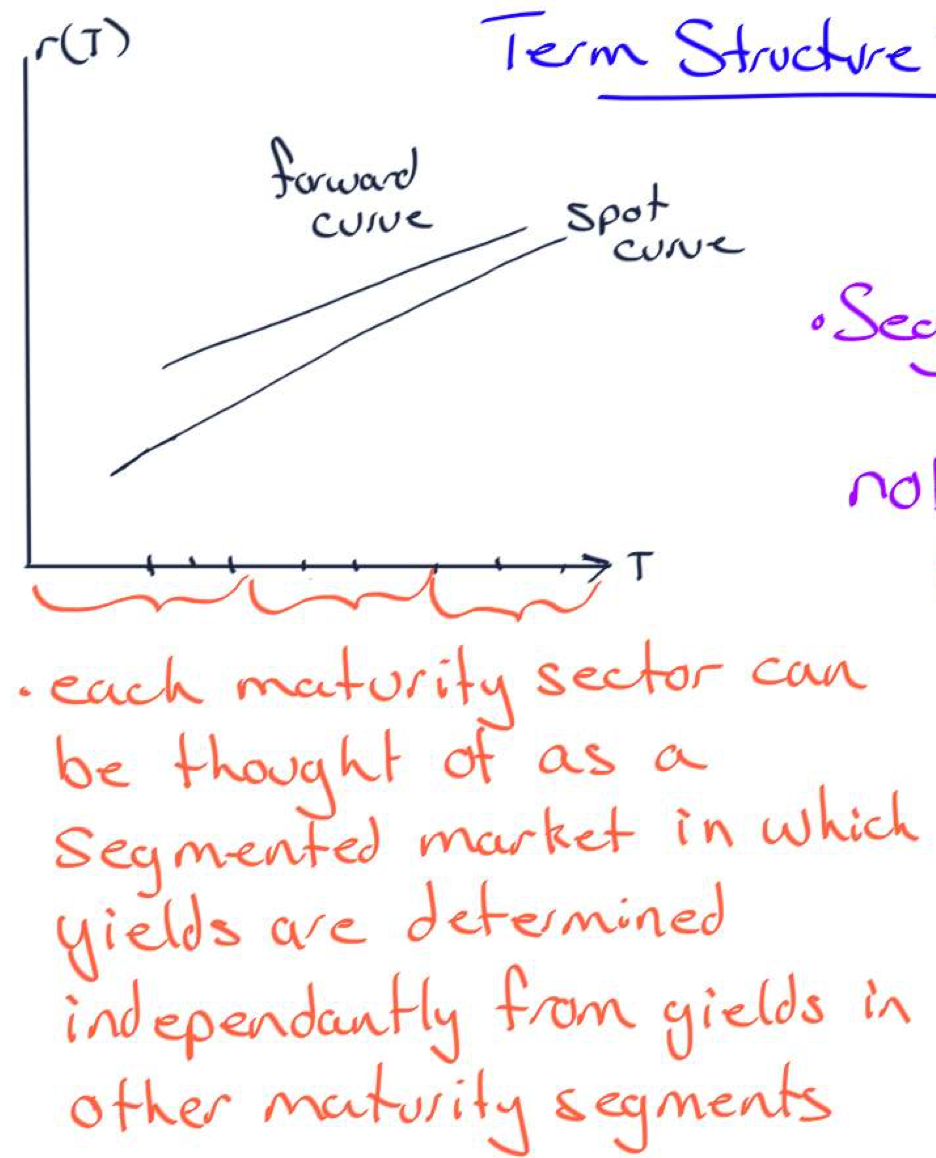 r(T)
Term Structure
forward
curve
spot
curve
T
• each maturity sector can
be thought of as a
segmented market in which
yields are determined
independantly from yields in
other maturity segments